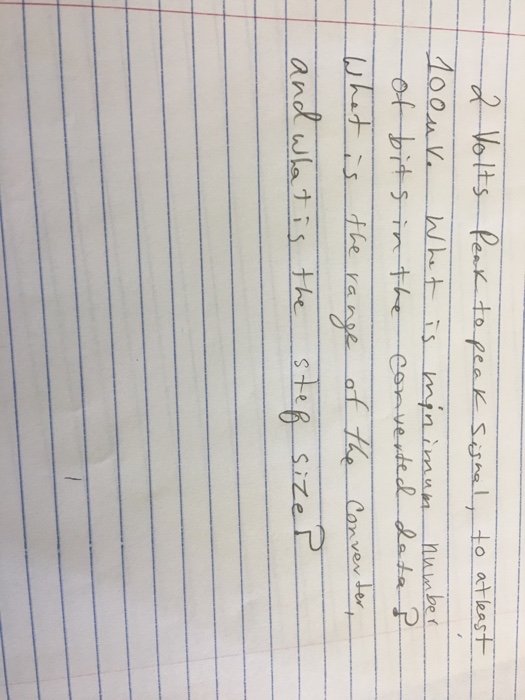 2 Volts Peak to peak signal, to atleast
100uV. What is minimum number
of bits in the converted data?
What is the range of the converter,
and what is the step size?